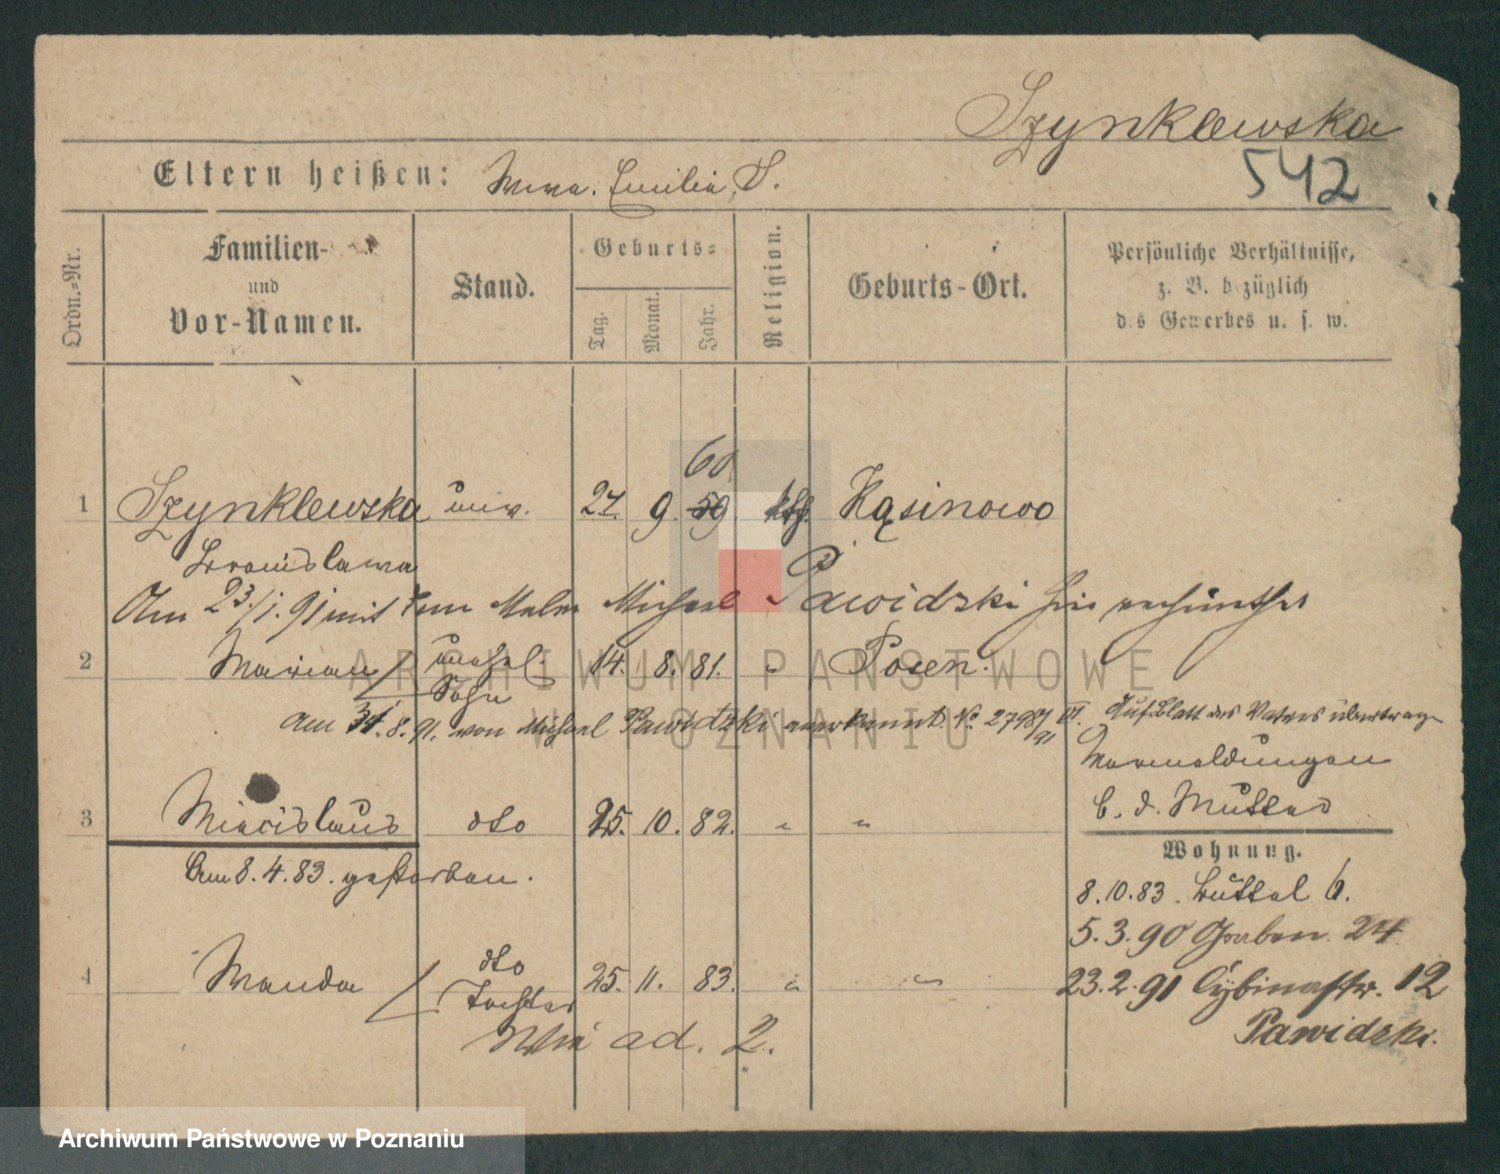 Szynklewska
542
Eltern heißen: Wwe. Emilia S.
Ordn.-Nr.
Familien- und Vor-Namen.
Stand.
Geburts-
Tag. Monat. Jahr.
Religion.
Geburts-Ort.
Persönliche Verhältnisse,
z. B. bezüglich
des Gewerbes u. s. w.
60
1 Szynklewska unv. 27. 9. 59. kth. Kąsinowo
Bronislawa
Am 23/1. 91 mit dem Maler Michael Pawidzki hier
2 Marian unehel. 14. 8. 81. " Posen.
Sohn
am 31. 8. 91. von Michael Pawidzki anerkannt. No 2798/91 III. Auf Blatt des Vaters übertragen
Anmeldungen
b. d. Mutter
3 Miecislaus dto 25. 10. 82. " "
Am 8. 4. 83. gestorben.
Wohnung.
8. 10. 83. Büttel 6.
5. 3. 90 Graben 24
4 Wanda dto 25. 11. 83. " "
Tochter
23. 2. 91 Cybinastr. 12
Pawidzki.
Wie ad. 2.
ARCHIWUM PAŃSTWOWE
W POZNANIU
Archiwum Państwowe w Poznaniu